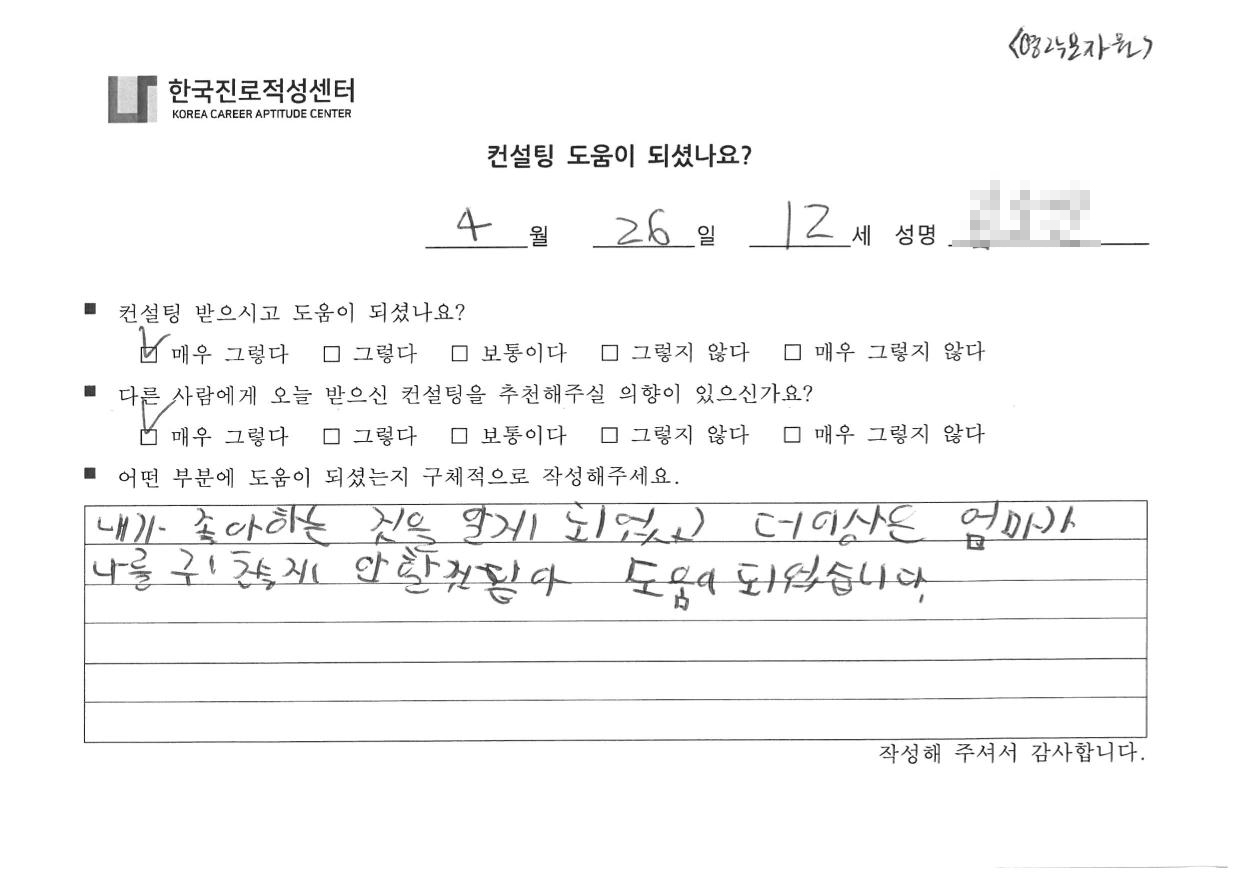 한국진로적성센터
KOREA CAREER APTITUDE CENTER
컨설팅 도움이 되셨나요?
4 월 26 일 12 세 성명
■ 컨설팅 받으시고 도움이 되셨나요?
☑ 매우 그렇다 □ 그렇다 □ 보통이다 □ 그렇지 않다 □ 매우 그렇지 않다
■ 다른 사람에게 오늘 받으신 컨설팅을 추천해주실 의향이 있으신가요?
☑ 매우 그렇다 □ 그렇다 □ 보통이다 □ 그렇지 않다 □ 매우 그렇지 않다
■ 어떤 부분에 도움이 되셨는지 구체적으로 작성해주세요.
내가 좋아하는 것을 알게 되었고 더이상은 엄마가
나를 귀찮게 안할것 도움이 되었습니다.
작성해 주셔서 감사합니다.